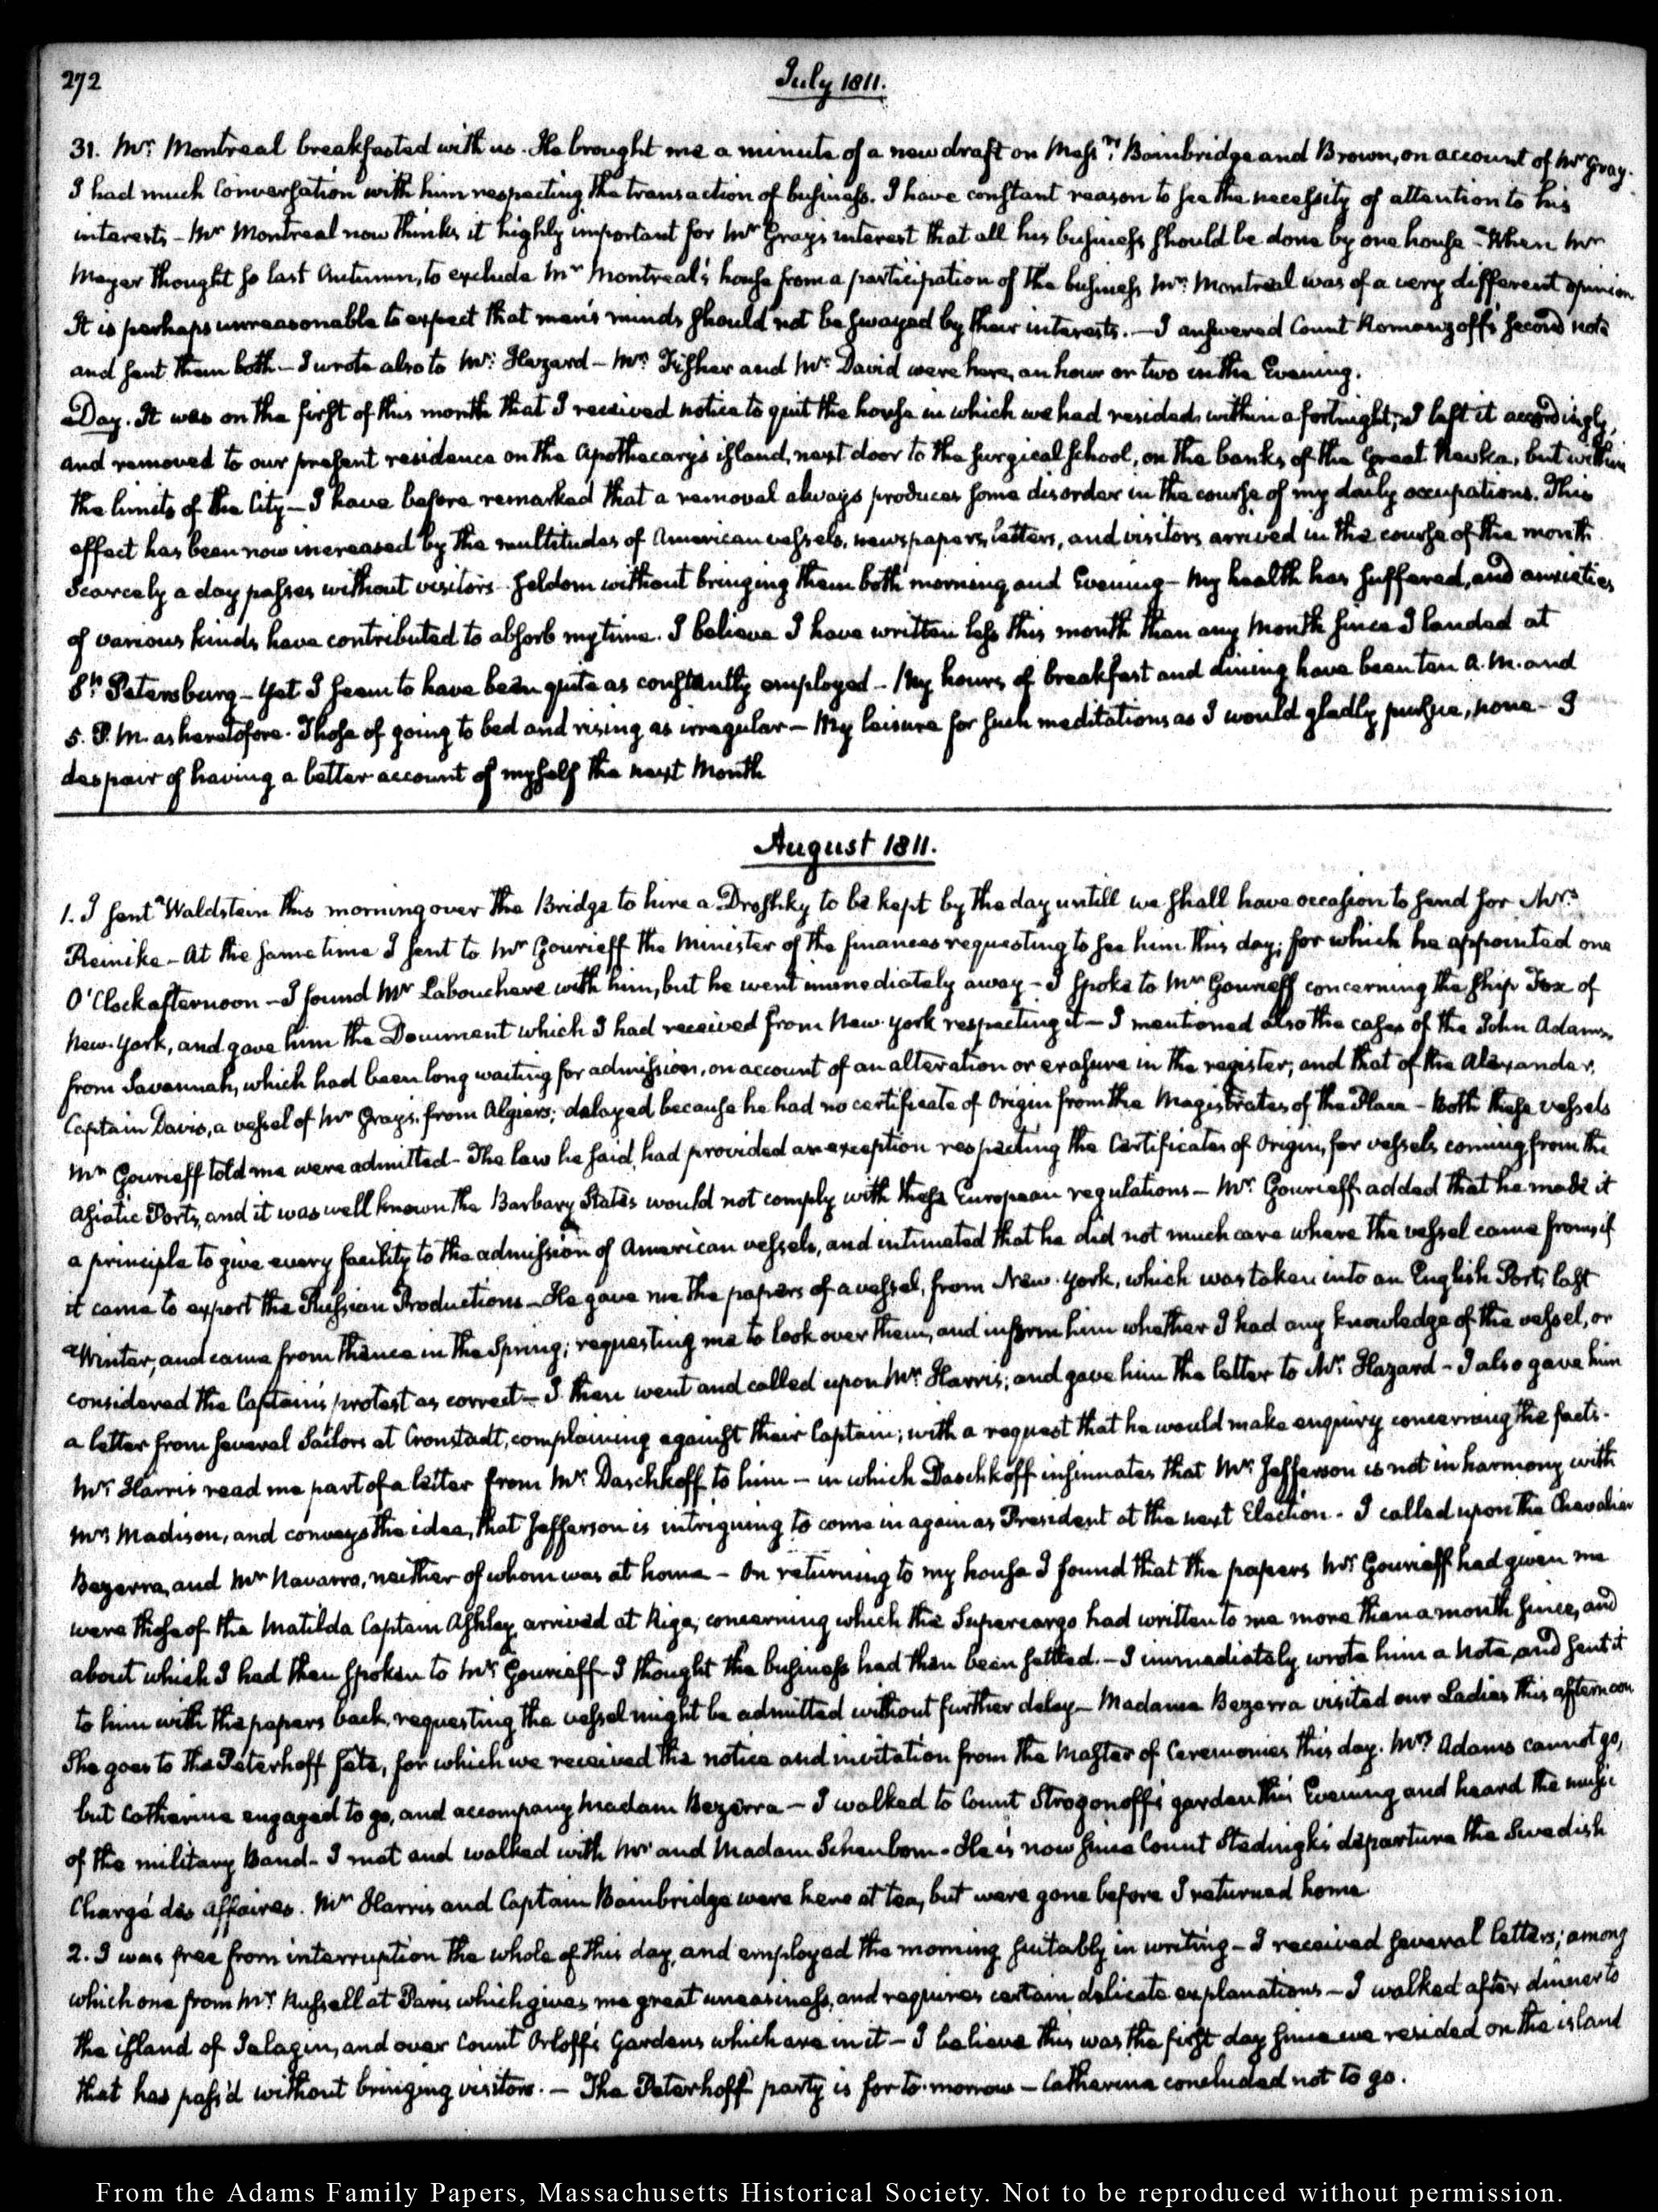 272
July 1811.
31. Mr. Montreal breakfasted with us. He brought me a minute of a new draft on Messrs. Bainbridge and Brown, on account of Mr Gray.
I had much Conversation with him respecting the transaction of business. I have constant reason to see the necessity of attention to his
interests - Mr Montreal now thinks it highly important for Mr Gray's interest that all his business should be done by one house - When Mr
Meyer thought so last Autumn, to exclude Mr Montreal's house from a participation of the business Mr. Montreal was of a very different opinion
It is perhaps unreasonable to expect that men's minds should not be swayed by their interests. - I answered Count Romanzoff's second note
and sent them both - I wrote also to Mr. Hazard - Mr. Fisher and Mr. David were here, an hour or two in the Evening.
Day. It was on the first of this month that I received notice to quit the house in which we had resided, within a fortnight; I left it accordingly,
and removed to our present residence on the Apothecary's island, next door to the surgical school, on the banks of the Great Newka, but within
the limits of the City - I have before remarked that a removal always produces some disorder in the course of my daily occupations. This
effect has been now increased by the multitudes of American vessels, newspapers, letters, and visitors arrived in the course of the month.
Scarcely a day passes without visitors - seldom without bringing them both morning and Evening - My health has suffered, and anxieties
of various kinds have contributed to absorb my time. I believe I have written less this month than any Month since I landed at
St. Petersburg - Yet I seem to have been quite as constantly employed - My hours of breakfast and dining have been ten A.M. and
5. P.M. as heretofore. Those of going to bed and rising as irregular - My leisure for such meditations as I would gladly pursue, none - I
despair of having a better account of myself the next Month
August 1811.
1. I sent Waldstein this morning over the Bridge to hire a Droshky to be kept by the day untill we shall have occasion to send for Mrs.
Reinike - At the same time I sent to Mr Gourieff the Minister of the finances requesting to see him this day; for which he appointed one
O'Clock afternoon - I found Mr Labouchere with him, but he went immediately away - I spoke to Mr Gourieff concerning the ship Fox of
New-York, and gave him the Document which I had received from New-York respecting it - I mentioned also the cases of the John Adams,
from Savannah, which had been long waiting for admission, on account of an alteration or erasure in the register; and that of the Alexander,
Captain Davis, a vessel of Mr Gray's, from Algiers; delayed because he had no certificate of Origin from the Magistrates of the Place - Both these vessels
Mr Gourieff told me were admitted - The law he said, had provided an exception respecting the Certificates of Origin, for vessels coming from the
Asiatic Ports, and it was well known the Barbary States would not comply with these European regulations - Mr. Gourieff added that he made it
a principle to give every facility to the admission of American vessels, and intimated that he did not much care where the vessel came from, if
it came to export the Russian Productions - He gave me the papers of a vessel, from New-York, which was taken into an English Port, last
Winter, and came from thence in the Spring; requesting me to look over them, and inform him whether I had any knowledge of the vessel, or
considered the Captain's protest as correct - I then went and called upon Mr. Harris; and gave him the letter to Mr. Hazard - I also gave him
a letter from several Sailors at Cronstadt, complaining against their Captain; with a request that he would make enquiry concerning the facts.
Mr Harris read me part of a letter from Mr. Daschkoff to him - in which Daschkoff insinuates that Mr. Jefferson is not in harmony with
Mr. Madison, and conveys the idea, that Jefferson is intriguing to come in again as President at the next Election - I called upon the Chevalier
Bezerra, and Mr Navarro, neither of whom was at home - On returning to my house I found that the papers Mr. Gourieff had given me
were those of the Matilda Captain Ashley, arrived at Riga, concerning which the Supercargo had written to me more than a month since, and
about which I had then spoken to Mr. Gourieff - I thought the business had then been settled. - I immediately wrote him a Note, and sent it
to him with the papers back, requesting the vessel might be admitted without further delay - Madame Bezerra visited our Ladies this afternoon
She goes to the Peterhoff fete, for which we received the notice and invitation from the Master of Ceremonies this day. Mrs. Adams cannot go,
but Catherine engaged to go, and accompany Madam Bezerra - I walked to Count Strogonoff's garden this Evening and heard the music
of the military Band - I met and walked with Mr and Madam Schenbom - He is now since Count Stedingk's departure the Swedish
Chargé des Affaires. Mr Harris and Captain Bainbridge were here at tea, but were gone before I returned home.
2. I was free from interruption the whole of this day, and employed the morning suitably in writing - I received several letters; among
which one from Mr. Russell at Paris which gives me great uneasiness, and requires certain delicate explanations - I walked after dinner to
the island of Jelagin, and over Count Orloff's Gardens which are in it - I believe this was the first day since we resided on the island
that has pass'd without bringing visitors. - The Peterhoff party is for to-morrow - Catherine concluded not to go.
From the Adams Family Papers, Massachusetts Historical Society. Not to be reproduced without permission.